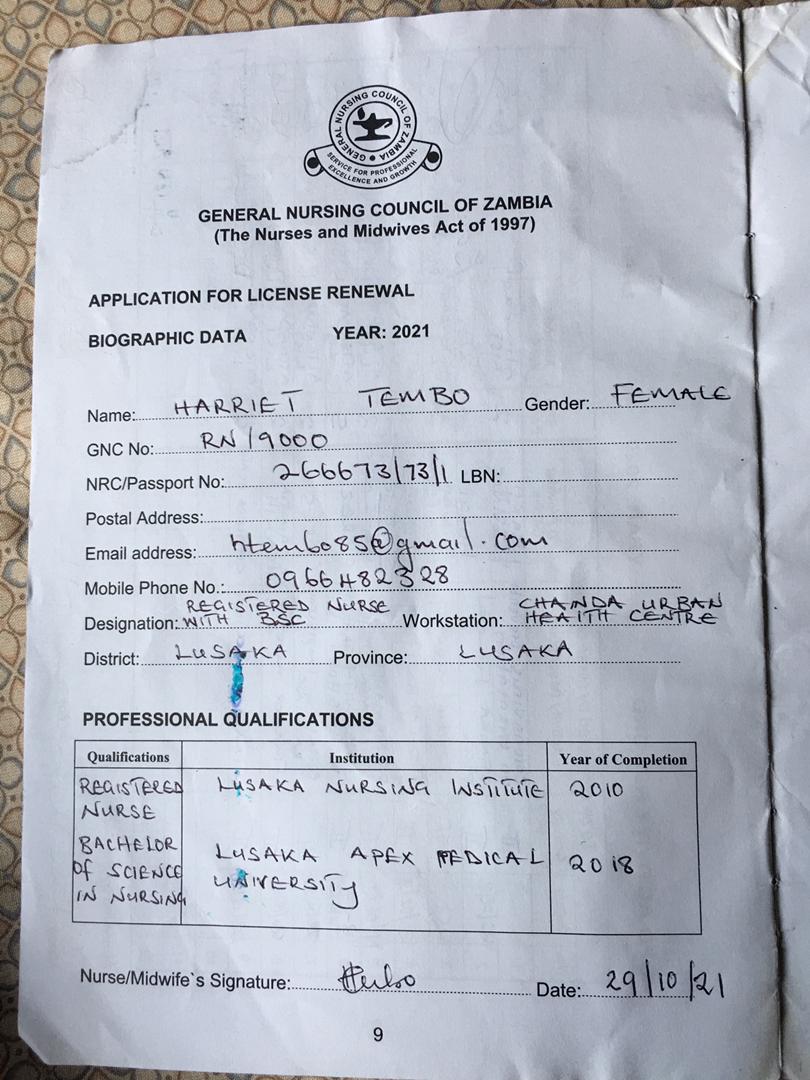 GENERAL NURSING COUNCIL OF ZAMBIA
SERVICE FOR PROFESSIONAL
EXCELLENCE AND GROWTH
GENERAL NURSING COUNCIL OF ZAMBIA
(The Nurses and Midwives Act of 1997)
APPLICATION FOR LICENSE RENEWAL
BIOGRAPHIC DATA YEAR: 2021
Name: HARRIET TEMBO Gender: FEMALE
GNC No: RN19000
NRC/Passport No: 266673/73/1 LBN:
Postal Address:
Email address: htembo85@gmail.com
Mobile Phone No.: 0966482328
Designation: REGISTERED NURSE WITH BSC Workstation: CHAINDA URBAN HEAITH CENTRE
District: LUSAKA Province: LUSAKA
PROFESSIONAL QUALIFICATIONS
Qualifications Institution Year of Completion
REGISTERED LUSAKA NURSING INSTITUTE 2010
NURSE
BACHELOR
OF SCIENCE LUSAKA APEX MEDICAL 2018
IN NURSING UNIVERSITY
Nurse/Midwife`s Signature: Date: 29/10/21
9